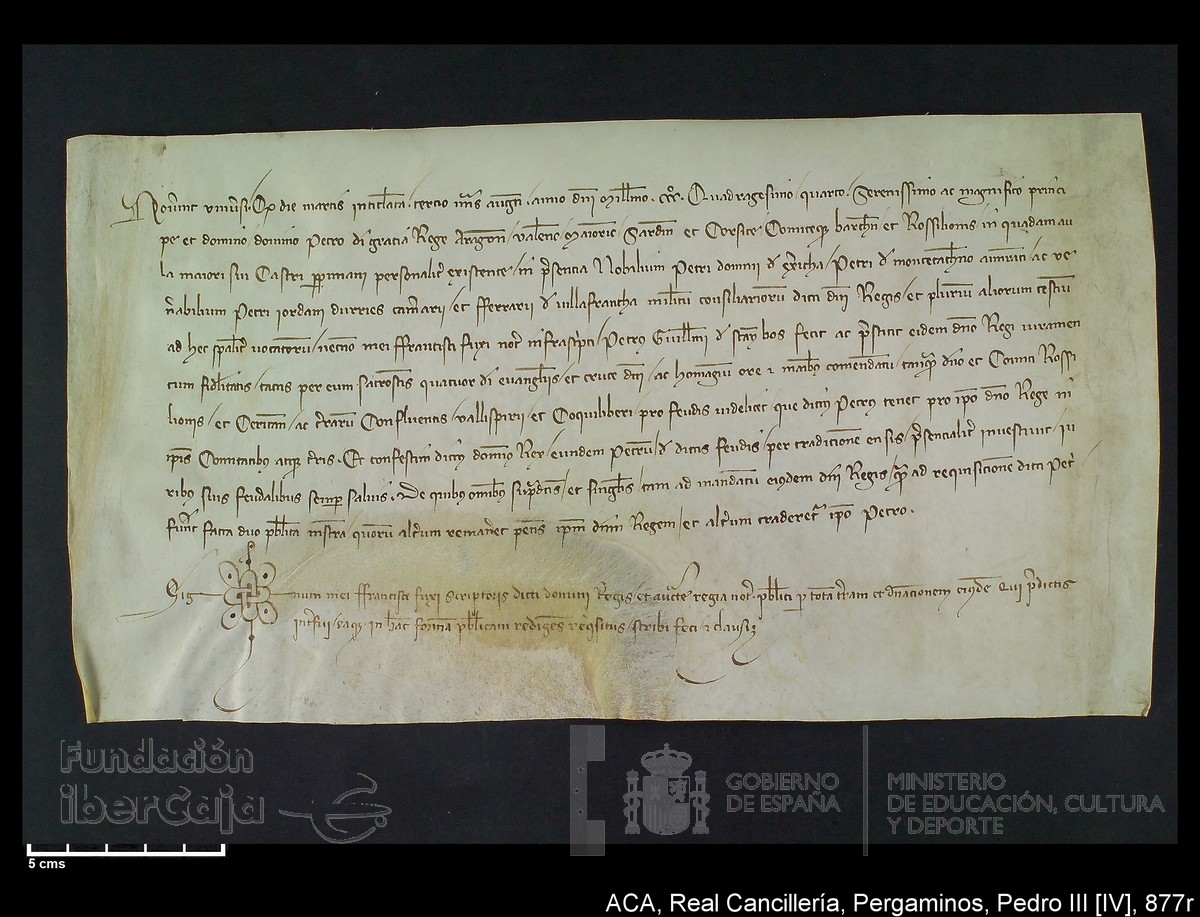 Noverint universi. Qd die martis intitulata tercio nons augusti anno dni Millmo. CCCo. Quadragesimo quarto. Serenissimo ac magnifico princi
pe et domino domino Petro di gracia Rege Aragon valenc Maioric Sardin et Corsice Comiteq barchn et Rossilionis in quadam au
la maiori sui Castri ppiniani personalit existente in psencia Nobilium Petri domini d Petri d montecatheno ac ve
nabilium Petri iordani durries camarii et fferrarii d villafrancha militu consiliarioru dicti dni Regis et pluriu aliorum testiu
ad hec spalit vocatoru necno mei ffrancisci fuxi not infrascpti Petrus Guillmi d stany bos fecit ac pstitit eidem dno Regi iuramen
tum fidlitatis tactis per eum sacrosctis quatuor di evanglis et cruce dni ac homagiu ore z manibz comendatu tanqm dno et Comiti Rossi
lionis et Ceritan ac trraru Confluentis vallispirii et Coquiliberi pro feudis videlicet que dictus Petrus tenet pro ipo dno Rege in
ipis Comitatibus atqz tris. Et confestim dictus domins Rex eundem Petru d dictis feudis per tradicione ensis psencialit investivit iu
ribus suis feudalibus semp salvis. De quibus omibus supdctis et singlis tam ad mandatu eiusdem dni Regis qm ad requisicione dicti Pet
funt facta duo pblica instra quoru altum remanet penes ipm dnm Regem et altum traderet ipo Petro.
Sig num mei ffrancisci fuxi scriptoris dicti domini Regis et aucte regia not pblici p tota tram et dnacionem eiusde Qui pdictis
intfui eaqz in hac forma pblicam redigens reqsitus scribi feci z clausi
Fundación
iberCaja
GOBIERNO
DE ESPAÑA
MINISTERIO
DE EDUCACIÓN, CULTURA
Y DEPORTE
5 cms
ACA, Real Cancillería, Pergaminos, Pedro III [IV], 877r